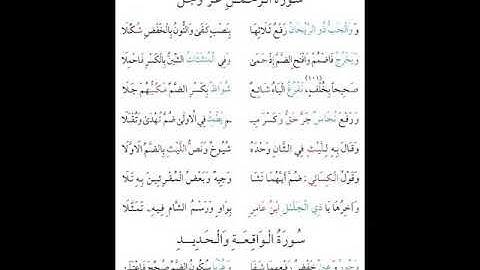 سُورَةُ الرَّحْمَنِ عَزَّ وَجَلَّ
وَوَالْحَبُّ ذُو الرَّيْحَانُ رَفْعُ ثَلَاثِهَا بِنَصْبٍ كَفَى وَالنُّونُ بِالْخَفْضِ شُكِّلَا
وَيُخْرَجُ فَاضْمُمْ وَافْتَحِ الضَّمَّ إِذْ حَمَى وَفِي الْمُنْشَآتُ الشِّينُ بِالْكَسْرِ فَاحْمِلَا
صَحِيحًا بِخُلْفٍ (١٠١) نَفْرُغُ الْيَاءُ شَائِعٌ شُوَاظٌ بِكَسْرِ الضَّمِّ مَكِّيُّهُمْ جَلَا
وَرَفْعَ نُحَاسٌ جَرَّ حَقٌّ وَكَسْرَ مِيـ ـمِ يَطْمِثْ فِي الُاولَى ضُمَّ تُهْدَى وَتُقْبَلَا
وَقَالَ بِهِ لِلَّيْثِ فِي الثَّانِ وَحْدَهُ شُيُوخٌ وَنَصُّ اللَّيْثِ بِالضَّمِّ الَاوَّلَا
وَقَوْلُ الْكِسَائِي ضُمَّ أَيَّهُمَا تَشَا وَجِيهٌ وَبَعْضُ الْمُقْرِئِينَ بِهِ تَلَا
وَآخِرُهَا يَا ذِي الْجَلَالِ ابْنُ عَامِرٍ بِوَاوٍ وَرَسْمُ الشَّامِ فِيهِ تَمَثَّلَا
سُورَةُ الْوَاقِعَةِ وَالْحَدِيدِ
وَحُورٌ وَعِينٌ خَفْضُ رَفْعِهِمَا شَفَا وَعُرْبًا سُكُونُ الضَّمِّ صُحِّحَ فَاعْتَلَى